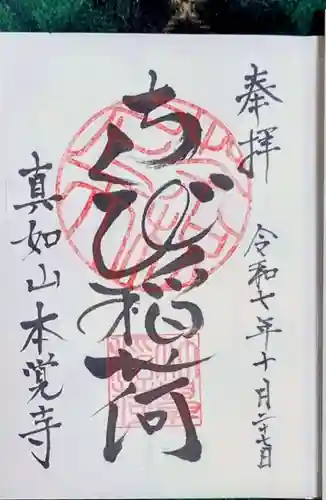 奉拝
令和七年十月二十七日
ちくび稲荷
真如山本覚寺